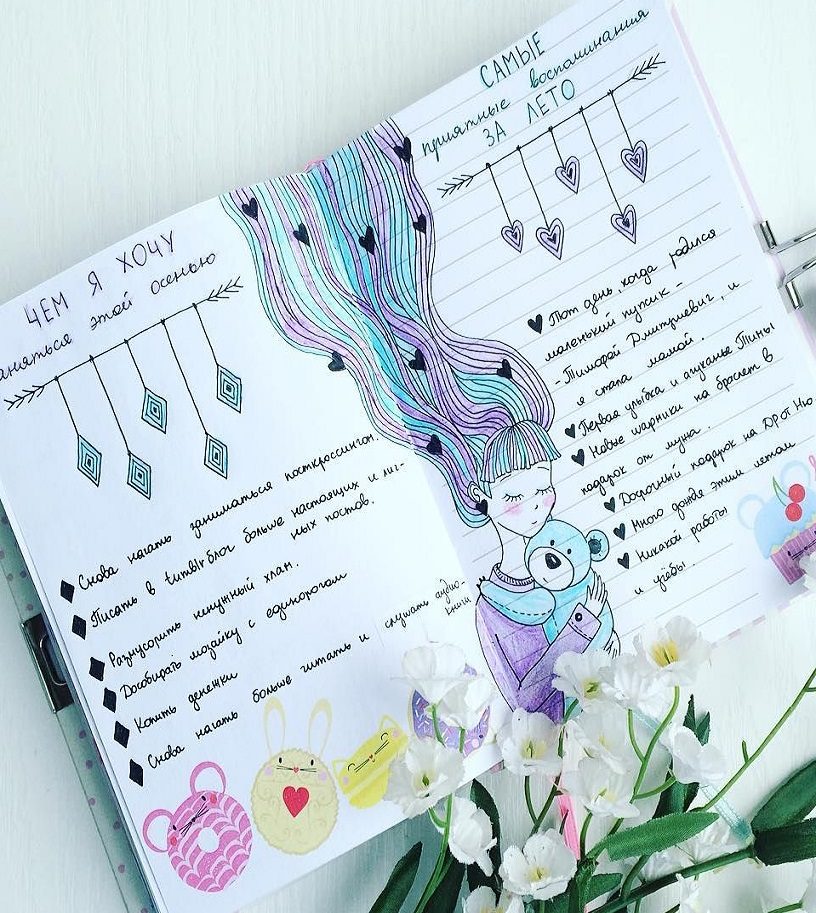 ЧЕМ Я ХОЧУ
заняться этой осенью
Снова начать заниматься посткроссингом.
Писать в tumblr блог больше настоящих и лич-
ных постов.
Размусорить ненужный хлам.
Дособирать мозайку с единорогом
Копить денежки
Снова начать больше читать и слушать аудио-
книги
САМЫЕ
приятные воспоминания
ЗА ЛЕТО
Тот день, когда родился
маленький пупсик -
- Тимофей Дмитриевич, и
я стала мамой.
Первая улыбка и агуканье Тимы
Новые шармики на браслет в
подарок от мужа.
подарок на ДР от
Много дождя этим летом
Никакой работы
и учёбы.